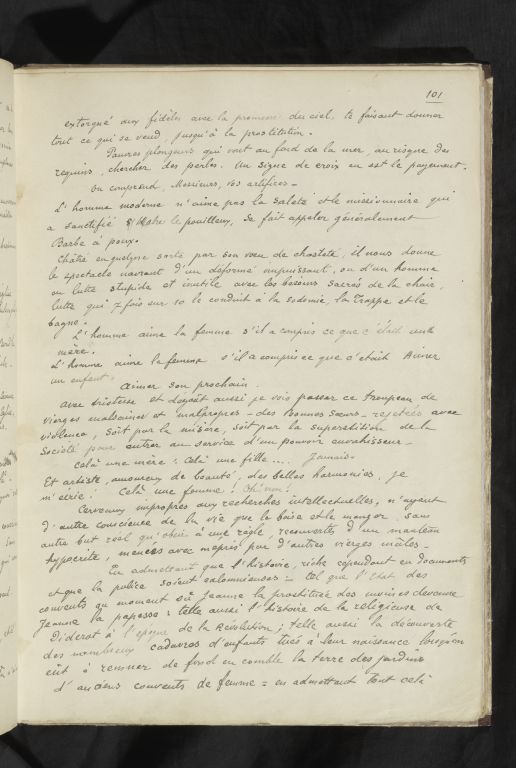 101
extorqué aux fidèles avec la promesse du ciel, te faisant donner
tout ce qui se vend, jusqu'à la prostitution.
Pauvres plongeurs qui vont au fond de la mer, au risque des
requins, chercher des perles. Un signe de croix en est le payement.
On comprend, Messieurs, vos artifices –
L'homme moderne n'aime pas la saleté et le missionnaire qui
a sanctifié St Labre le pouilleux, se fait appeler généralement
Barbe à poux.
Châtré en quelque sorte par son vœu de chasteté, il nous donne
le spectacle navrant d'un déformé impuissant, ou d'un homme
en lutte stupide et inutile avec les besoins sacrés de la chair,
lutte qui 7 fois sur 10 le conduit à la sodomie, la Trappe et le
bagne.
L'homme aime la femme s'il a compris ce que c'était une
mère.
L'homme aime la femme s'il a compris ce que c'était Aimer
un enfant.
Aimer son prochain.
Avec tristesse et dégoût aussi je vois passer ce troupeau de
vierges malsaines et malpropres – des bonnes sœurs – rejetées avec
violence, soit par la misère, soit par la superstition de la
Société pour entrer au service d'un pouvoir envahisseur –
Celà une mère! Celà une fille.... Jamais.
Et artiste, amoureux de beauté, des belles harmonies, je
m'écrie! Celà une femme! Oh! non!
Cerveaux impropres aux recherches intellectuelles, n'ayant
d'autre conscience de la vie que le boire et le manger, sans
autre but réel qu'obéir à une règle, recouvertes d'un manteau
hypocrite, menées avec mépris par d'autres vierges mâles –
En admettant que l'histoire, riche cependant en documents
et que la police soient calomnieuses = tel que l'Etat des
couvents au moment où Jeanne la prostituée des moines devance
Jeanne la papesse: telle aussi l'histoire de la religieuse de
Diderot à l'époque de la Révolution; telle aussi la découverte
des nombreux cadavres d'enfants tués à leur naissance lorsqu'on
eût à remuer de fond en comble la terre des jardins
d'anciens couvents de femme = en admettant tout celà